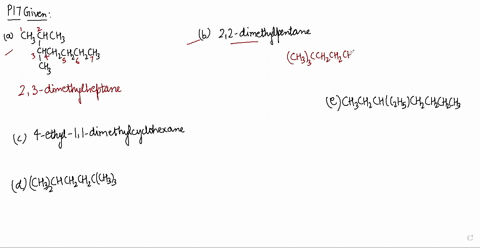 P17 Given:
(a) ¹CH₃²CHCH₃
³CH⁴CH₂⁵CH₂⁶CH₂⁷CH₃
CH₃
2,3-dimethylheptane
(b) 2,2-dimethylpentane
(CH₃)₃CCH₂CH₂C
(e) CH₃CH₂CH(C₂H₅)CH₂CH₂CH₂CH₃
(c) 4-ethyl-1,1-dimethylcyclohexane
(d) (CH₃)₂CHCH₂CH₂C(CH₃)₃